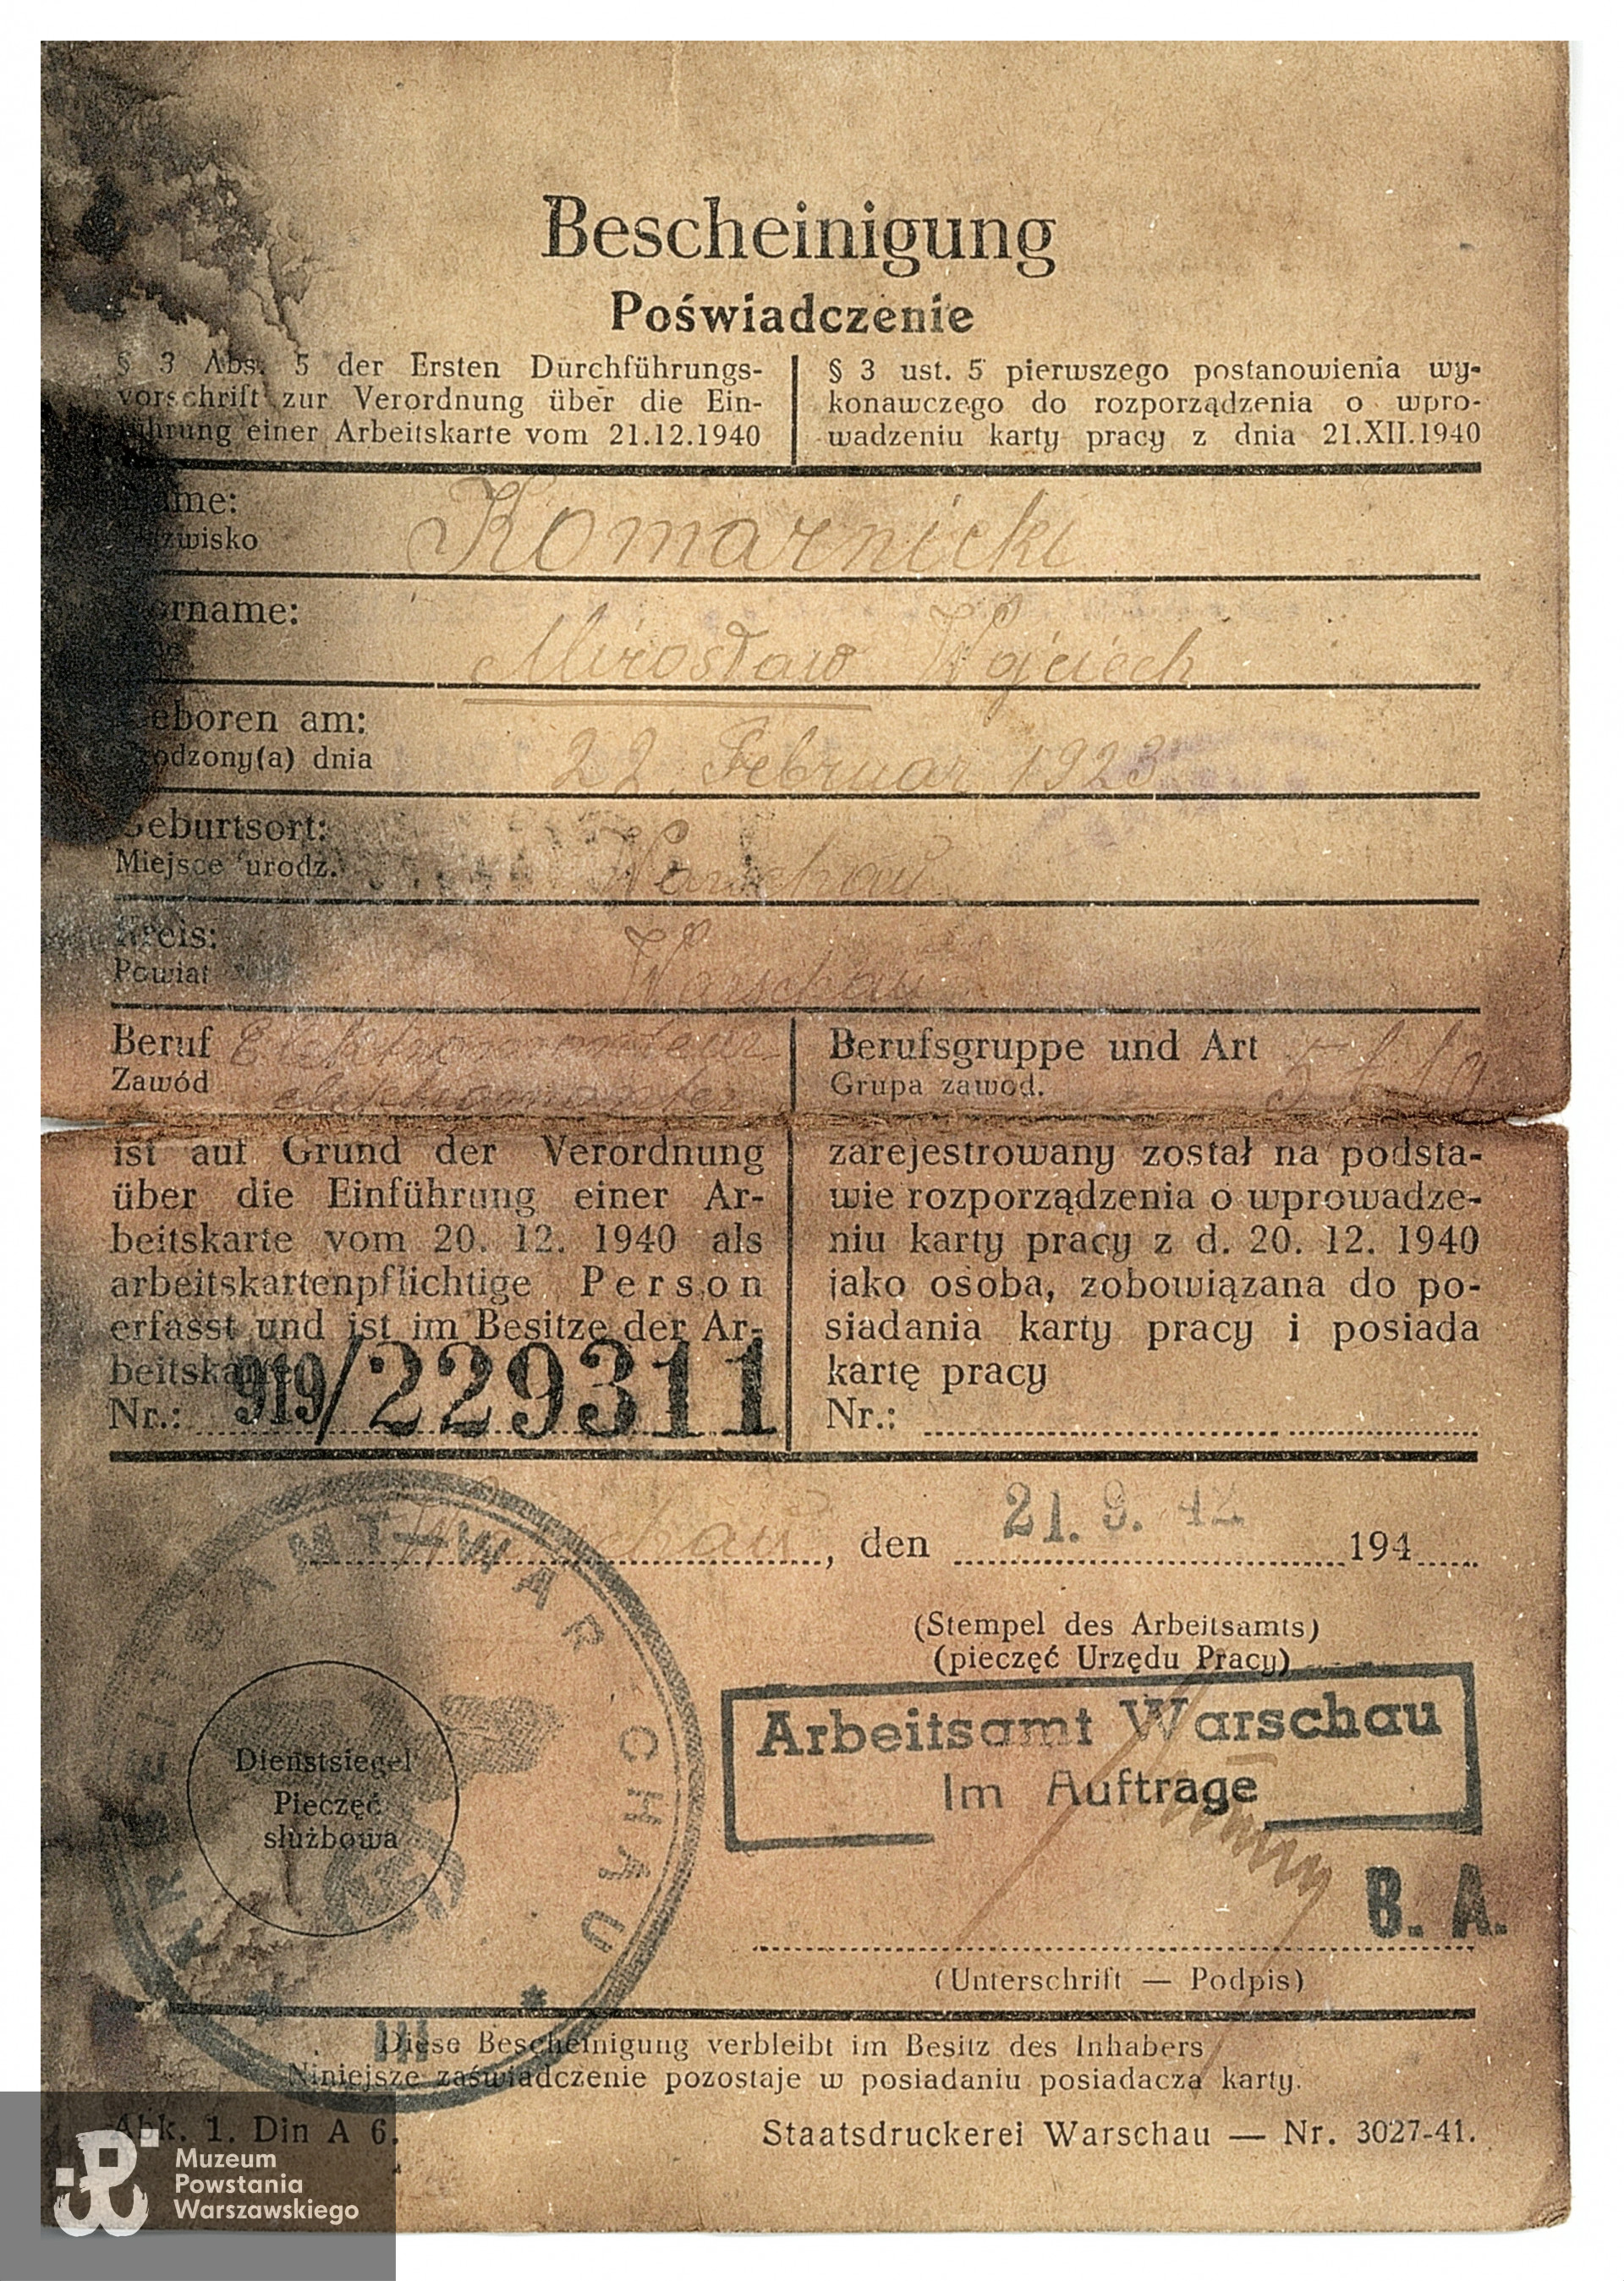 Bescheinigung
Poświadczenie
§ 3 Abs. 5 der Ersten Durchführungs-
vorschrift zur Verordnung über die Ein-
führung einer Arbeitskarte vom 21.12.1940
§ 3 ust. 5 pierwszego postanowienia wy-
konawczego do rozporządzenia o wpro-
wadzeniu karty pracy z dnia 21.XII.1940
Name: Komarnicki
Nazwisko
Vorname: Mirosław Wojciech
Geboren am: 22. Februar 1923
Urodzony(a) dnia
Geburtsort: Warschau
Miejsce urodz.
Kreis: Warschau
Powiat
Beruf Elektromonteur
Zawód elektromonter
Berufsgruppe und Art
Grupa zawod.
ist auf Grund der Verordnung
über die Einführung einer Ar-
beitskarte vom 20. 12. 1940 als
arbeitskartenpflichtige Person
erfasst und ist im Besitze der Ar-
beitskarte
Nr.: 919/229311
zarejestrowany został na podsta-
wie rozporządzenia o wprowadze-
niu karty pracy z d. 20. 12. 1940
jako osoba, zobowiązana do po-
siadania karty pracy i posiada
kartę pracy
Nr.:
Warschau, den 21. 9. 42 194
(Stempel des Arbeitsamts)
(pieczęć Urzędu Pracy)
Arbeitsamt Warschau
Im Auftrage
B. A.
(Unterschrift — Podpis)
ARBEITSAMT-WARSCHAU
III
Dienstsiegel
Pieczęć
służbowa
Diese Bescheinigung verbleibt im Besitz des Inhabers
Niniejsze zaświadczenie pozostaje w posiadaniu posiadacza karty.
Abk. 1. Din A 6.
Staatsdruckerei Warschau — Nr. 3027-41.
Muzeum
Powstania
Warszawskiego